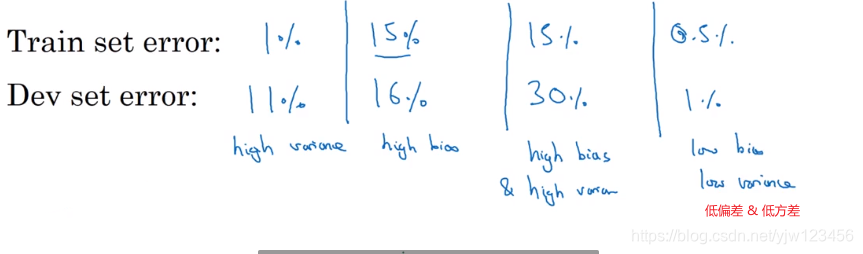 Train set error: 1% 15% 15% 0.5%
Dev set error: 11% 16% 30% 1%
high variance high bias high bias low bias
& high varian low variance
低偏差 & 低方差
https://blog.csdn.net/yjw123456